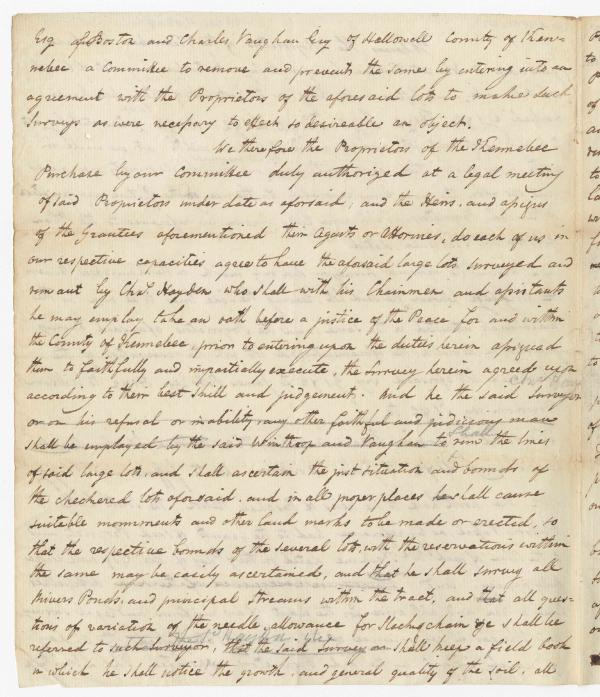 Esq of Boston and Charles Vaughan Esq of Hallowell County of Kenne-
nebec a Committee to remove and prevent the same by entering into an
agreement with the Proprietors of the aforesaid lots to make such
Surveys as were necessary to effect so desireable an object.
We therefore the Proprietors of the Kennebec
Purchase by our Committee duly authorized at a legal meeting
of said Proprietors under date as aforsaid, and the Heirs, and assigns
of the Grantees aforementioned their Agents or Attornies, do each of us in
our respective capacities agree to have the aforsaid large lots surveyed and
run out by Chas. Hayden who shall with his Chainmen and assistants
he may employ take an oath before a justice of the Peace for and within
the County of Kennebec, prior to entering upon the duties herein assigned
them to faithfully and impartially execute, the Survey herein agreed upon
according to their best Skill and judgement. And he the said Surveyor
or on his refusal or inability any other faithful and judicious man
shall be employed by the said Winthrop and Vaughan to shall run the lines
of said large lots, and shall ascertain the just situation and bounds of
the checkered lots aforesaid, and in all proper places he shall cause
suitable monuments and other land marks to be made or erected, so
that the respective bounds of the several lots, with the reservations within
the same may be easily ascertained, and that he shall survey all
Rivers Ponds, and principal Streams within the tract, and that all ques-
tions of variation of the needle, allowance for Slack chain &c shall be
referred to such Surveyor, that the said Surveyor shall keep a field book
in which he shall notice the growth, and general quality of the soil, all